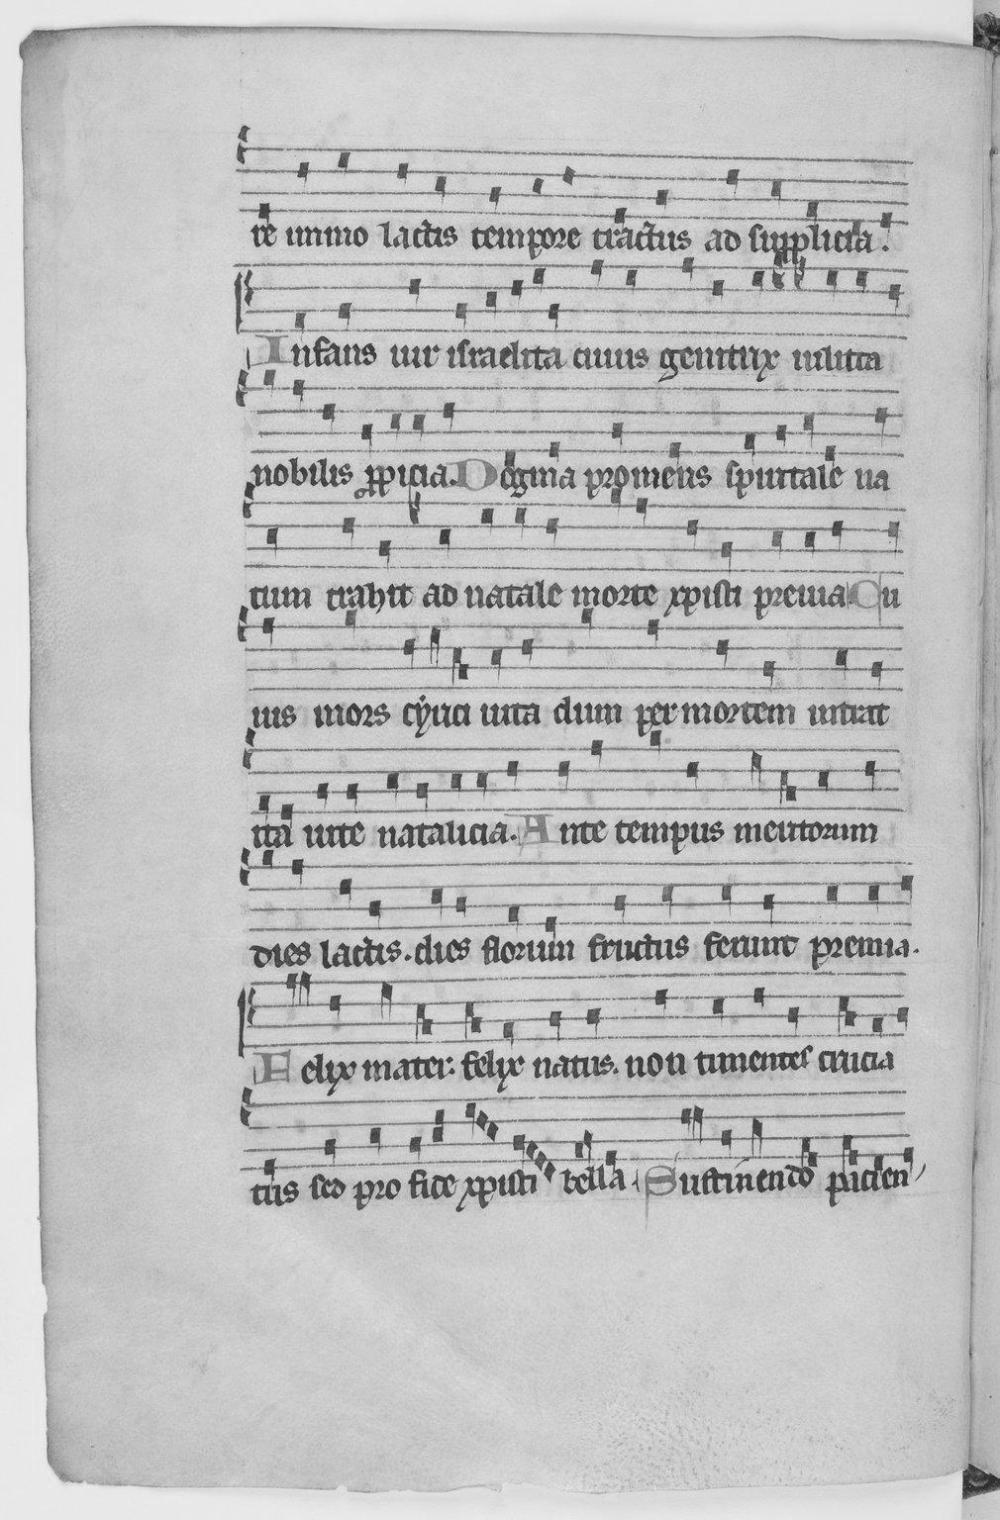 re immo lactis tempore tractus ad supplicia.
Infans uir israelita cuius genitrix iulitta
nobilis ppicia. Dogma promens spiritale ua
tum trahit ad natale morte xpisti premia Cu
ius mors cyrici uita dum per mortem intrat
ita uite natalicia. Ante tempus meritorum
dies lactis. dies florum fructus ferunt premia.
Felix mater. felix natus. non timentes crucia
tus sed pro fide xpisti bella. Sustinendo pacien